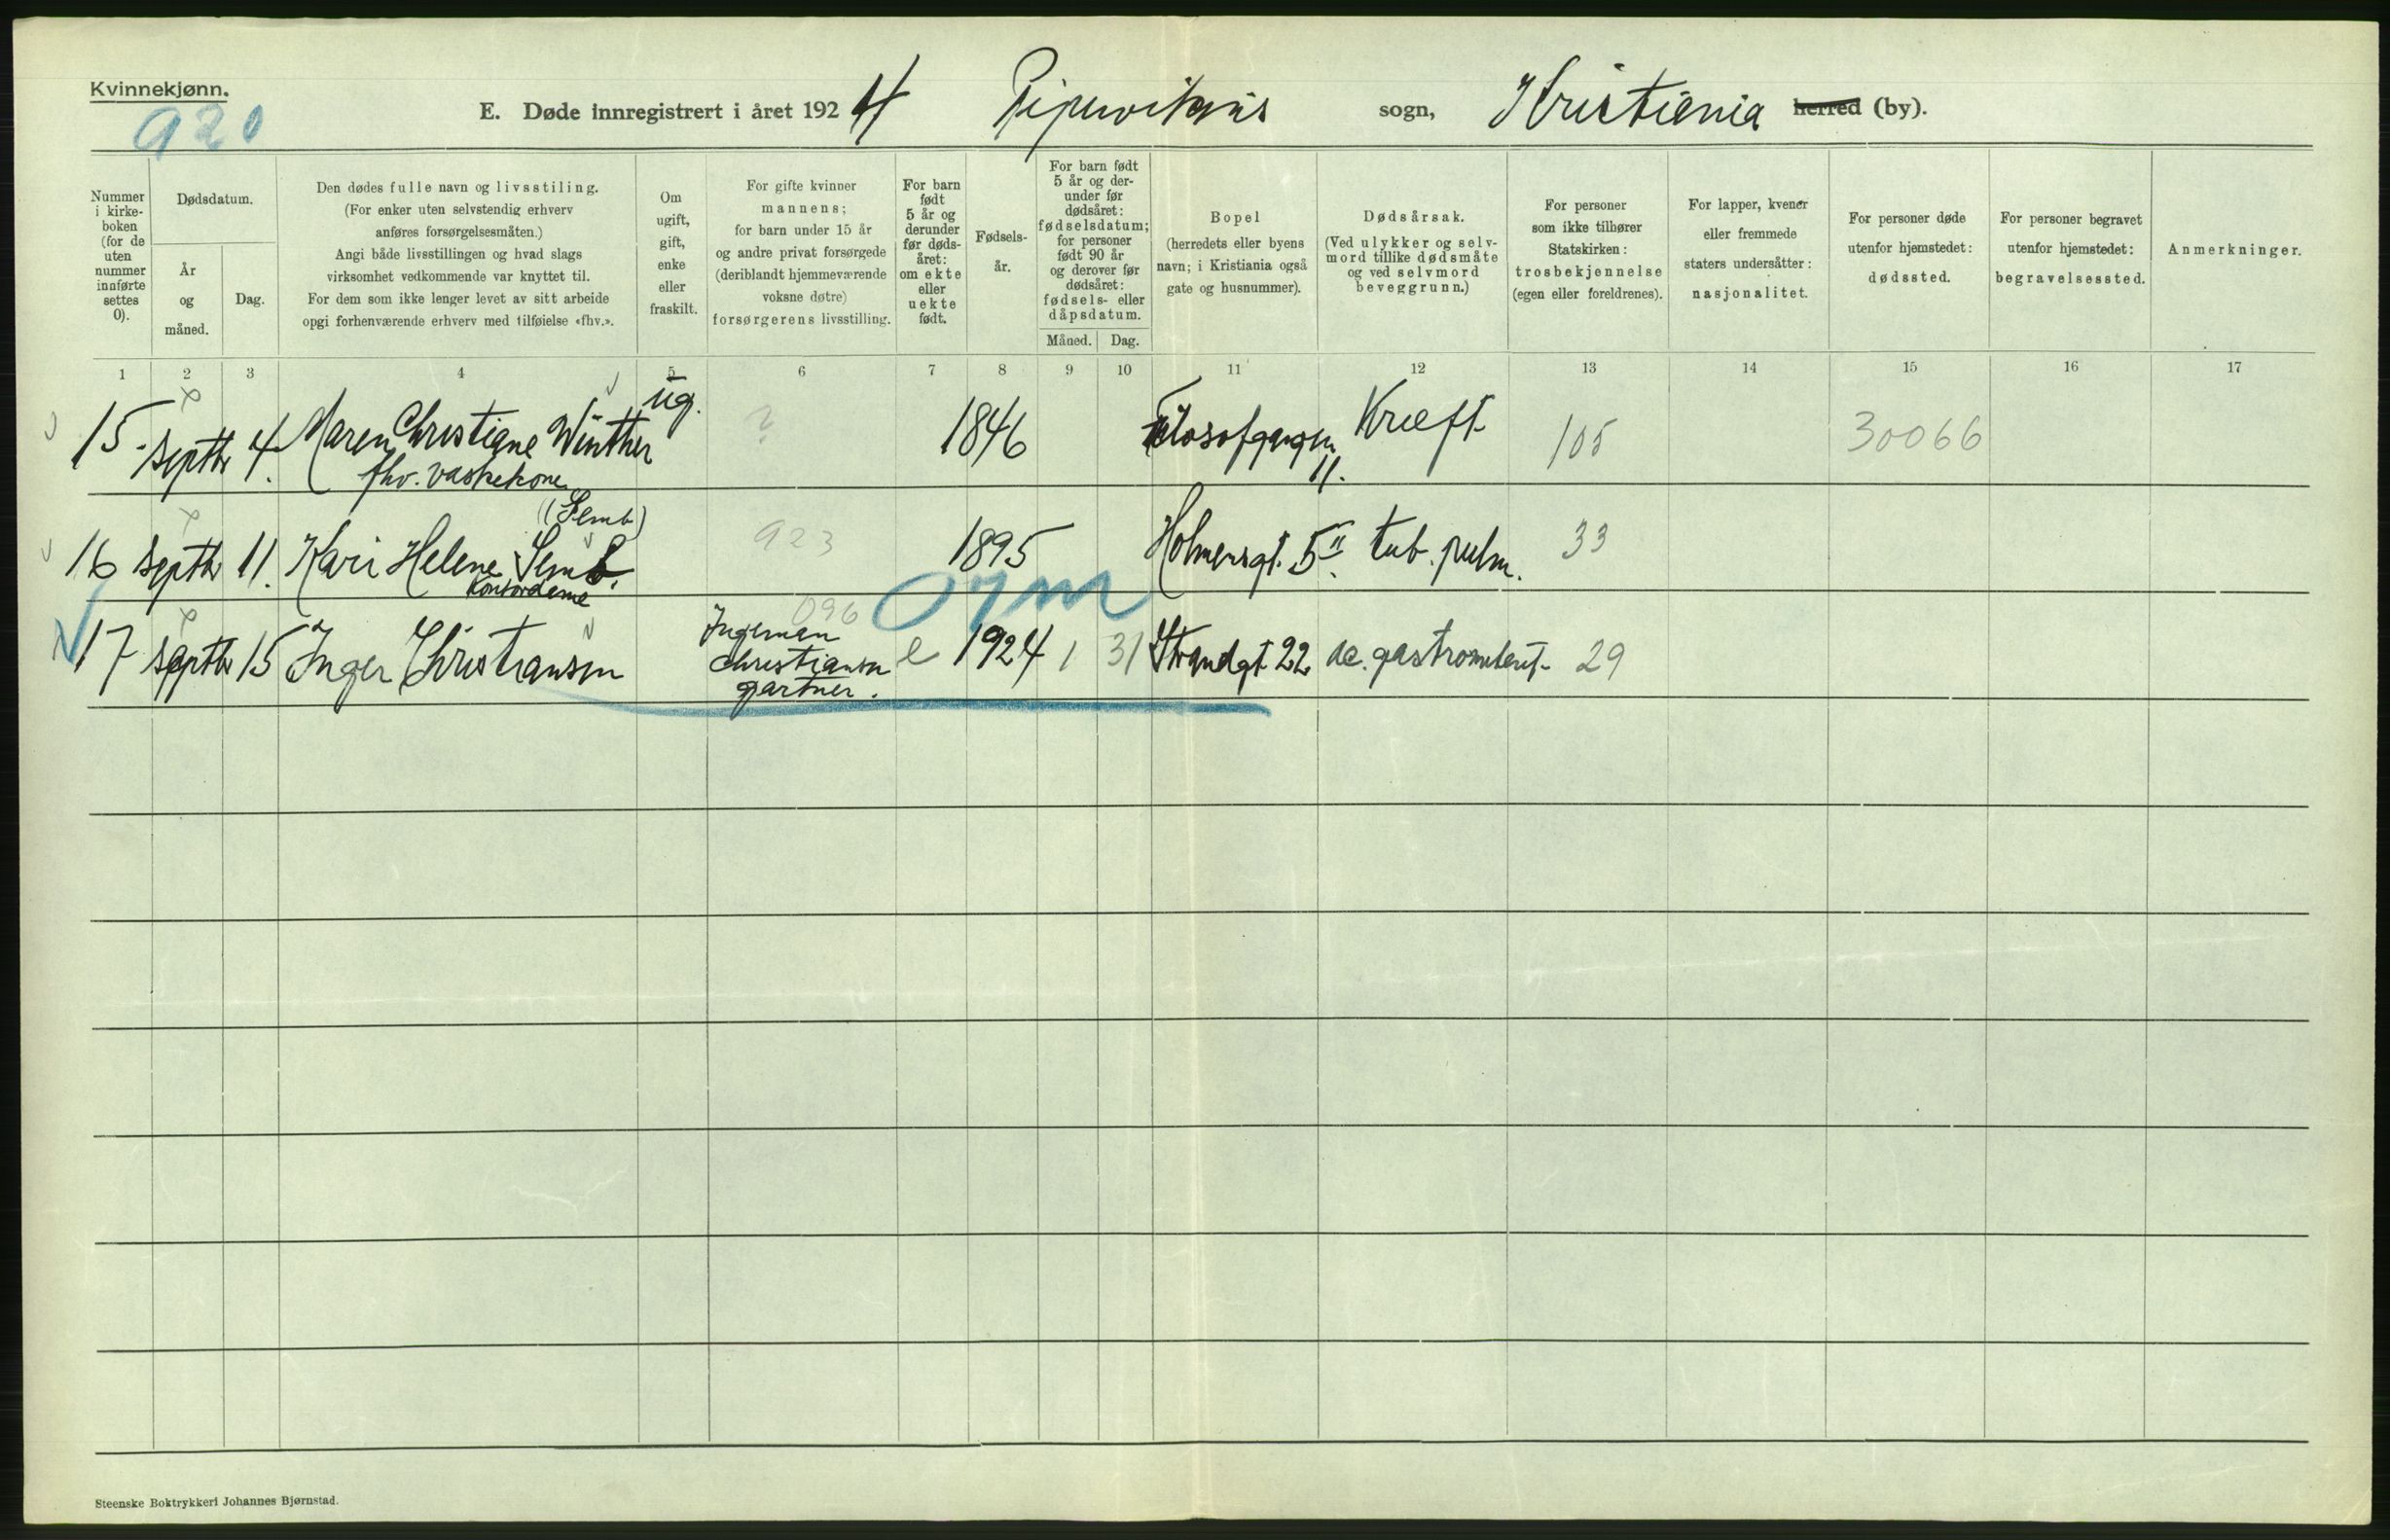 Kvinnekjønn.
920
E. Døde innregistrert i året 1924 Pipervikens sogn, Kristiania herred (by).
Nummer i kirkeboken (for de uten nummer innførte settes 0).
Dødsdatum.
År og måned.
Dag.
Den dødes fulle navn og livsstiling.
(For enker uten selvstendig erhverv
anføres forsørgelsesmåten.)
Angi både livsstillingen og hvad slags
virksomhet vedkommende var knyttet til.
For dem som ikke lenger levet av sitt arbeide
opgi forhenværende erhverv med tilføielse «fhv.».
Om ugift, gift, enke eller fraskilt.
For gifte kvinner
mannens;
for barn under 15 år
og andre privat forsørgede
(deriblandt hjemmeværende
voksne døtre)
forsørgerens livsstilling.
For barn født 5 år og derunder før dødsåret: om ekte eller uekte født.
Fødselsår.
For barn født 5 år og derunder før dødsåret: fødselsdatum; for personer født 90 år og derover før dødsåret: fødsels- eller dåpsdatum.
Måned. Dag.
Bopel
(herredets eller byens
navn; i Kristiania også
gate og husnummer).
Dødsårsak.
(Ved ulykker og selv-
mord tillike dødsmåte
og ved selvmord
beveggrunn.)
For personer
som ikke tilhører
Statskirken:
trosbekjennelse
(egen eller foreldrenes).
For lapper, kvener
eller fremmede
staters undersåtter:
nasjonalitet.
For personer døde
utenfor hjemstedet:
dødssted.
For personer begravet
utenfor hjemstedet:
begravelsessted.
Anmerkninger.
1 2 3 4 5 6 7 8 9 10 11 12 13 14 15 16 17
15 Septbr 4. Maren Christiane Winther ug. ? 1846 Filosofgangen 11. Kræft 105 30066
fhv. vaskekone
(Semb)
16 Septbr 11. Kari Helene Semb. 923 1895 Holmensgt. 5II tub. pulm. 33
Kontordame
17 Septbr 15 Inger Christiansen 096 Ingeman Christiansen gartner. e 1924 1 31 Strandgt 22 ac. gastroenterit. 29
Steenske Boktrykkeri Johannes Bjørnstad.